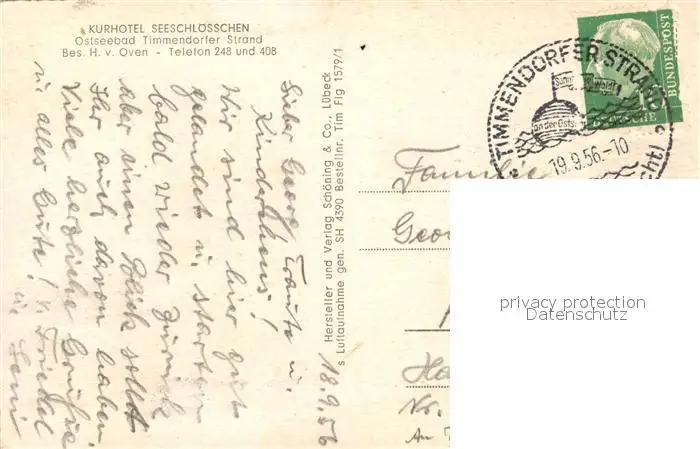 KURHOTEL SEESCHLÖSSCHEN
Ostseebad Timmendorfer Strand
Bes. H. v. Oven - Telefon 248 und 408
18.9.56
Lieber Georg, Traute u.
Kinderhaus!
Wir sind hier gut
gelandet u. starten
bald wieder zurück
aber einen Blick sollt
Ihr auch davon haben.
Viele herzliche Grüße
u. alles Gute! v. Friedel
u. Leni
Hersteller und Verlag Schöning & Co., Lübeck
s Luftaufnahme gen. SH 4390 Bestellnr. Tim Flg 1579/1
TIMMENDORFER STRAND
an der Ostsee
19.9.56.-10
DEUTSCHE
BUNDESPOST
Familie
Geor
Ha
Nr.
An
privacy protection
Datenschutz